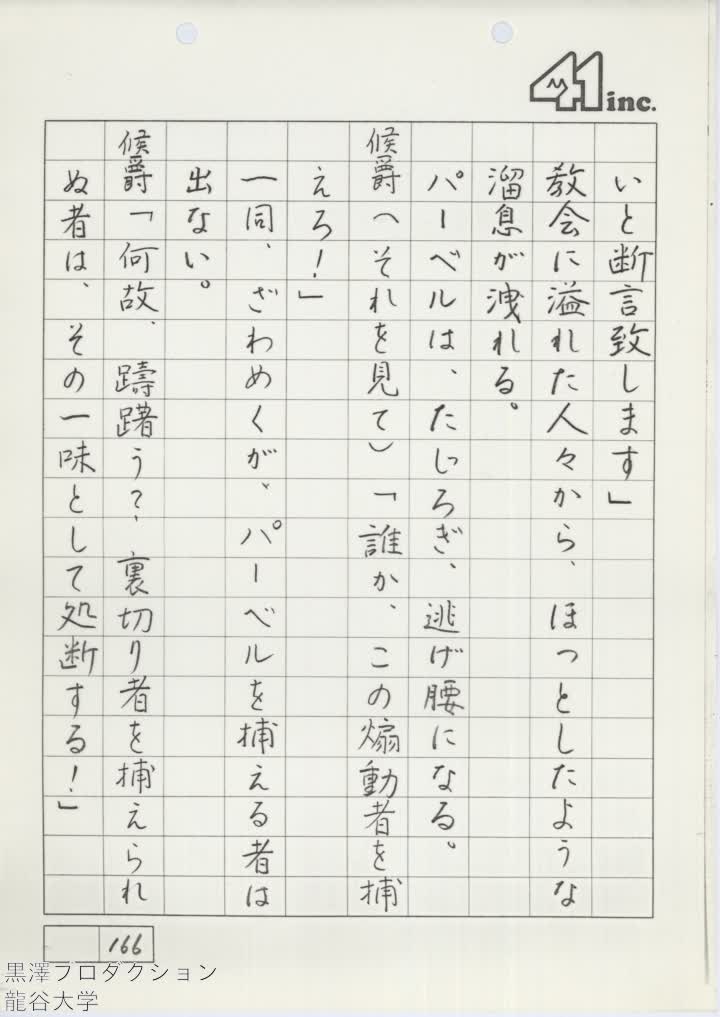 41 inc.
いと断言致します」
教会に溢れた人々から、ほっとしたような
溜息が洩れる。
パーベルは、たじろぎ、逃げ腰になる。
候爵（それを見て）「誰か、この煽動者を捕
えろ！」
一同、ざわめくが、パーベルを捕える者は
出ない。
候爵「何故、躊躇う？、裏切り者を捕えられ
ぬ者は、その一味として処断する！」
166
黒澤プロダクション
龍谷大学